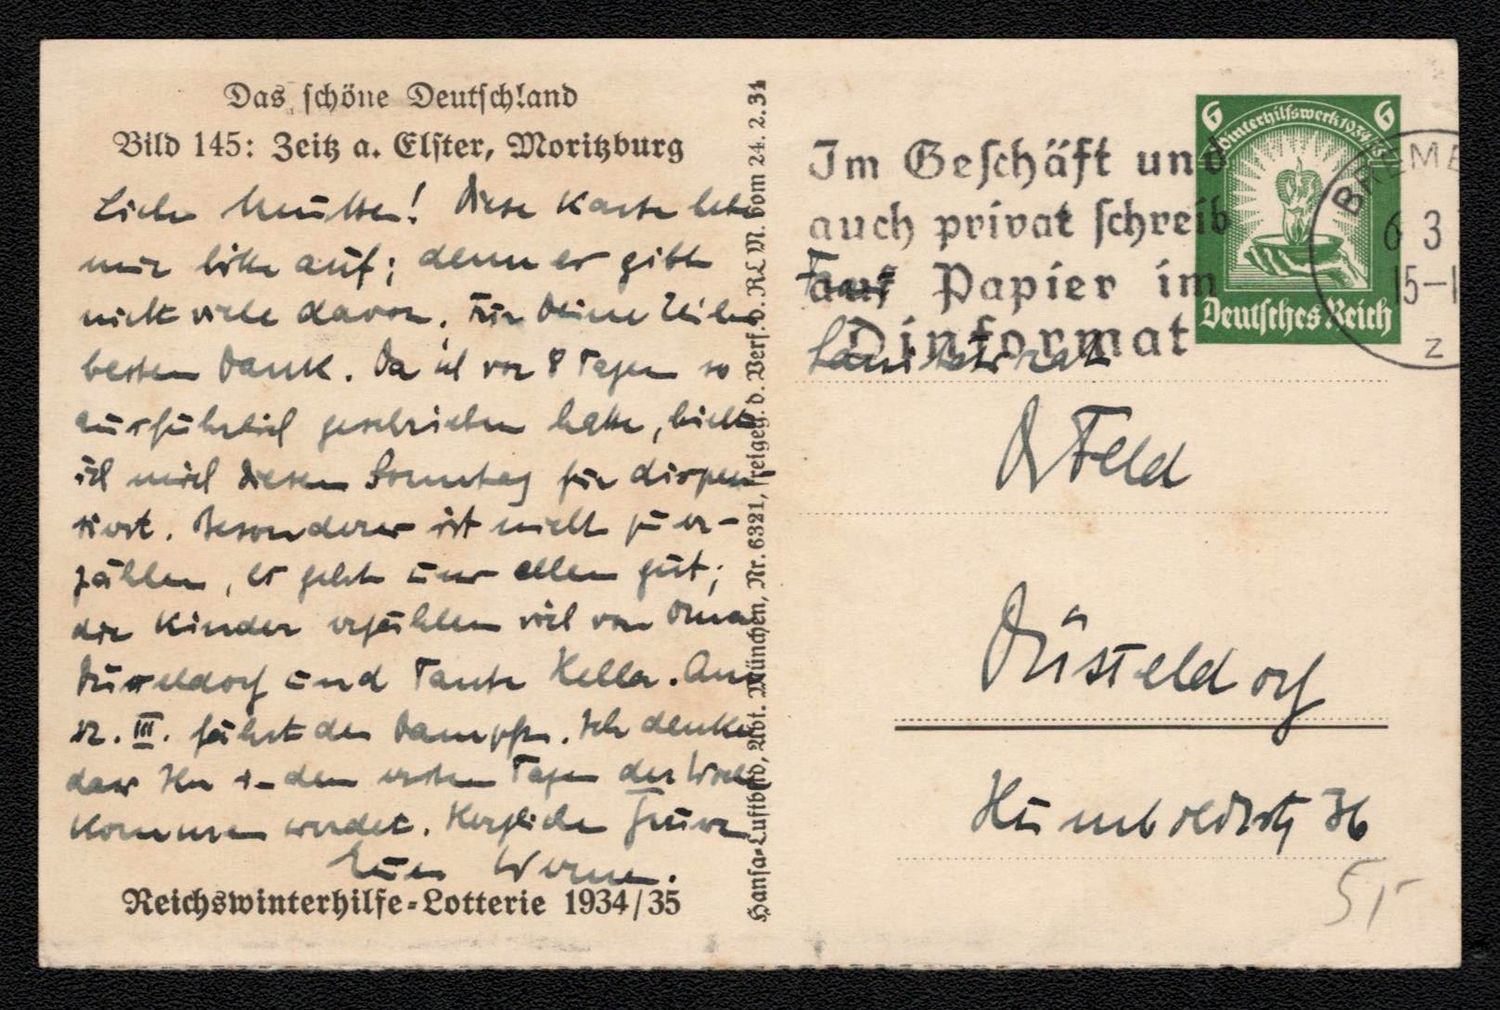 Das schöne Deutschland
Bild 145: Zeitz a. Elster, Moritzburg
Liebe Mutter! Diese Karte hebe
mir bitte auf; denn er gibt
nicht viele davon. Für Deine Zeilen
besten Dank. Da ich vor 8 Tagen so
ausführlich geschrieben hatte, hielt
ich mich diesen Sonntag für dispen-
siert. Besonderes ist nicht zu er-
zählen, es geht uns allen gut;
die Kinder erzählen viel von Oma
Düsseldorf und Tante Hella. Am
12. III. fährt der Dampfer. Ich denke
dass Ihr in den ersten Tagen der Woche
kommen werdet. Herzliche Grüsse
Euer Werner.
Reichswinterhilfe-Lotterie 1934/35
Hansa-Luftbild, Abt. München, Nr. 6321, freigeg. d. Verf. d. RLM. vom 24. 2. 34
Im Geschäft und
auch privat schreib
auf Papier im
Dinformat
6 6
Winterhilfswerk 1934/35
Deutsches Reich
BREME
6 3
15-1
z
Frau
Sanitätsrat
Dr Feld
Düsseldorf
Humboldtstr 36